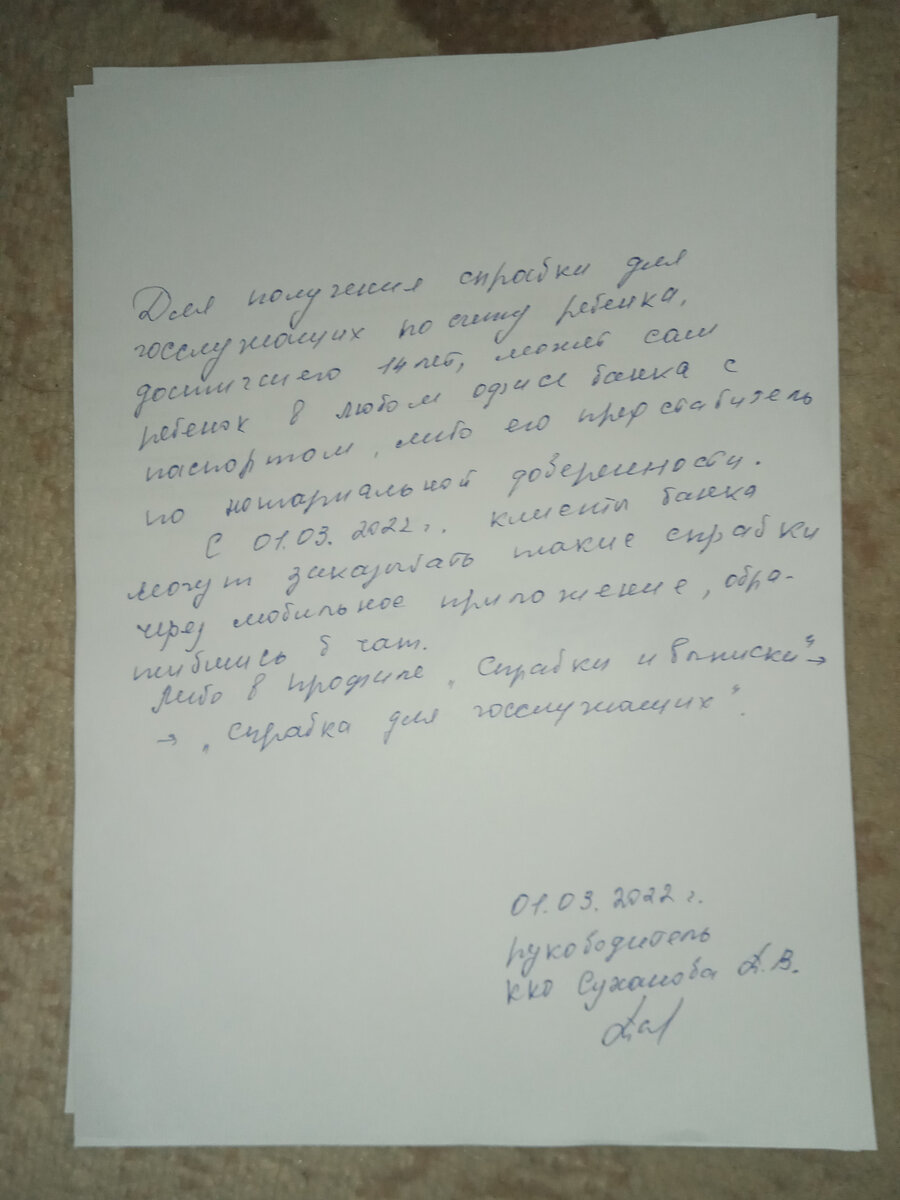 Для получения справки для
госслужащих по счету ребенка,
достигшего 14 лет, может сам
ребенок в любом офисе банка с
паспортом, либо его представитель
по нотариальной доверенности.
С 01.03.2022 г. клиенты банка
могут заказывать такие справки
через мобильное приложение, обра-
тившись в чат.
Либо в профиле „Справки и выписки" →
→ „Справка для госслужащих".
01.03.2022 г.
руководитель
ККО Суханова Д.В.